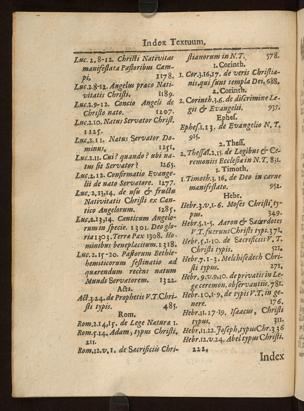 Index Textuum.
Luc. 2, 8-12. Christi Nativitas
manifestata Pastoribus Cam-
pi. 1178.
Luc. 2.8-12. Angelus præco Nati-
vitatis Christi. 1189.
Luc. 2.9-12. Concio Angeli de
Christo nato. 1207.
Luc. 2.10. Natus Servator Christ.
1225.
Luc. 2.11. Natus Servator Do-
minus, 1251.
Luc. 2.11. Cui? quando? ubi na-
tus sit Servator? 1265.
Luc. 2.12. Confirmatio Evange-
lii de nato Servatore. 1277.
Luc. 2,13,14. de usu & fructu
Nativitatis Christi ex Can-
tico Angelorum. 1285.
Luc. 2.13,14. Canticum Angelo-
rum in specie. 1301. Deo glo-
ria 1303. Terra Pax 1308. Ho-
minibus beneplacitum. 1318.
Luc. 2.15-20. Pastorum Bethle-
hemiticorum festinatio ad
quærendum recèns natum
Mundi Servatorem. 1322.
Acta.
Act. 3.24. de Prophetis V.T. Chri-
sti typis. 485.
Rom.
Rom. 2.14,15. de Lege Natura 1.
Rom. 5.14. Adam, typus Christi,
211.
Rom. 12.v.1. de Sacrificiis Chri-
stianorum in N.T. 578.
1. Corinth.
1. Cor. 3.16,17. de veris Christia-
nis, qui sunt templa Dei, 688.
2. Corinth.
2. Corinth. 3.6. de discrimine Le-
gis & Evangelii. 937.
Ephes.
Ephes. 2.13. de Evangelio N.T.
925.
2. Thess.
2. Thessal. 2.15. de Legibus & Ce-
remoniis Ecclesia in N.T. 831.
1. Timoth.
1. Timoth. 3.16. de Deo in carne
manifestato. 952.
Hebr.
Hebr. 3.v.1-6. Moses Christi ty-
pus. 349.
Hebr. 5.1-5. Aaron & Sacerdotes
V.T. fuerunt Christi typi. 371.
Hebr. 5.1-10. de Sacrificiis V.T.
Christi typis. 521.
Hebr. 7.1-3. Melchisedech Chri-
sti typus. 271.
Hebr. 9.v.9.10. de privatis in Le-
ge ceremon. observantiis. 781.
Hebr. 10,1-9. de typis V.T. in ge-
nere. 196.
Hebr. 11.17-19. Isaacus, Christi
typus. 311.
Hebr. 11.22. Joseph, typus Chr. 336
Hebr. 12.v.24. Abel typus Christi.
222.
Index